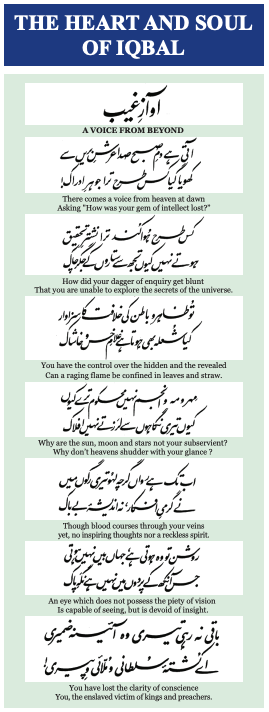 THE HEART AND SOUL
OF IQBAL
آوازِ غیب
A VOICE FROM BEYOND
آتی ہے دمِ صبح صدا عرشِ بریں سے
کھویا گیا کس طرح ترا جوہرِ ادراک!
There comes a voice from heaven at dawn
Asking "How was your gem of intellect lost?"
کس طرح ہوا کُند ترا نشترِ تحقیق
ہوتے نہیں کیوں تجھ سے ستاروں کے جگر چاک
How did your dagger of enquiry get blunt
That you are unable to explore the secrets of the universe.
تو ظاہر و باطن کی خلافت کا سزاوار
کیا شُعلہ بھی ہوتا ہے غلامِ خس و خاشاک
You have the control over the hidden and the revealed
Can a raging flame be confined in leaves and straw.
مہر و مہ و انجم نہیں محکوم ترے کیوں
کیوں تیری نگاہوں سے لرزتے نہیں افلاک
Why are the sun, moon and stars not your subservient?
Why don't heavens shudder with your glance ?
اب تک ہے رواں گرچہ لہو تیری رگوں میں
نے گرمیِ افکار، نہ اندیشۂ بے باک
Though blood courses through your veins
yet, no inspiring thoughts nor a reckless spirit.
روشن تو وہ ہوتی ہے، جہاں بیں نہیں ہوتی
جس آنکھ کے پردوں میں نہیں ہے نگہِ پاک
An eye which does not possess the piety of vision
Is capable of seeing, but is devoid of insight.
باقی نہ رہی تیری وہ آئینہ ضمیری
اے کُشتۂ سُلطانی و مُلّائی و پیری!
You have lost the clarity of conscience
You, the enslaved victim of kings and preachers.